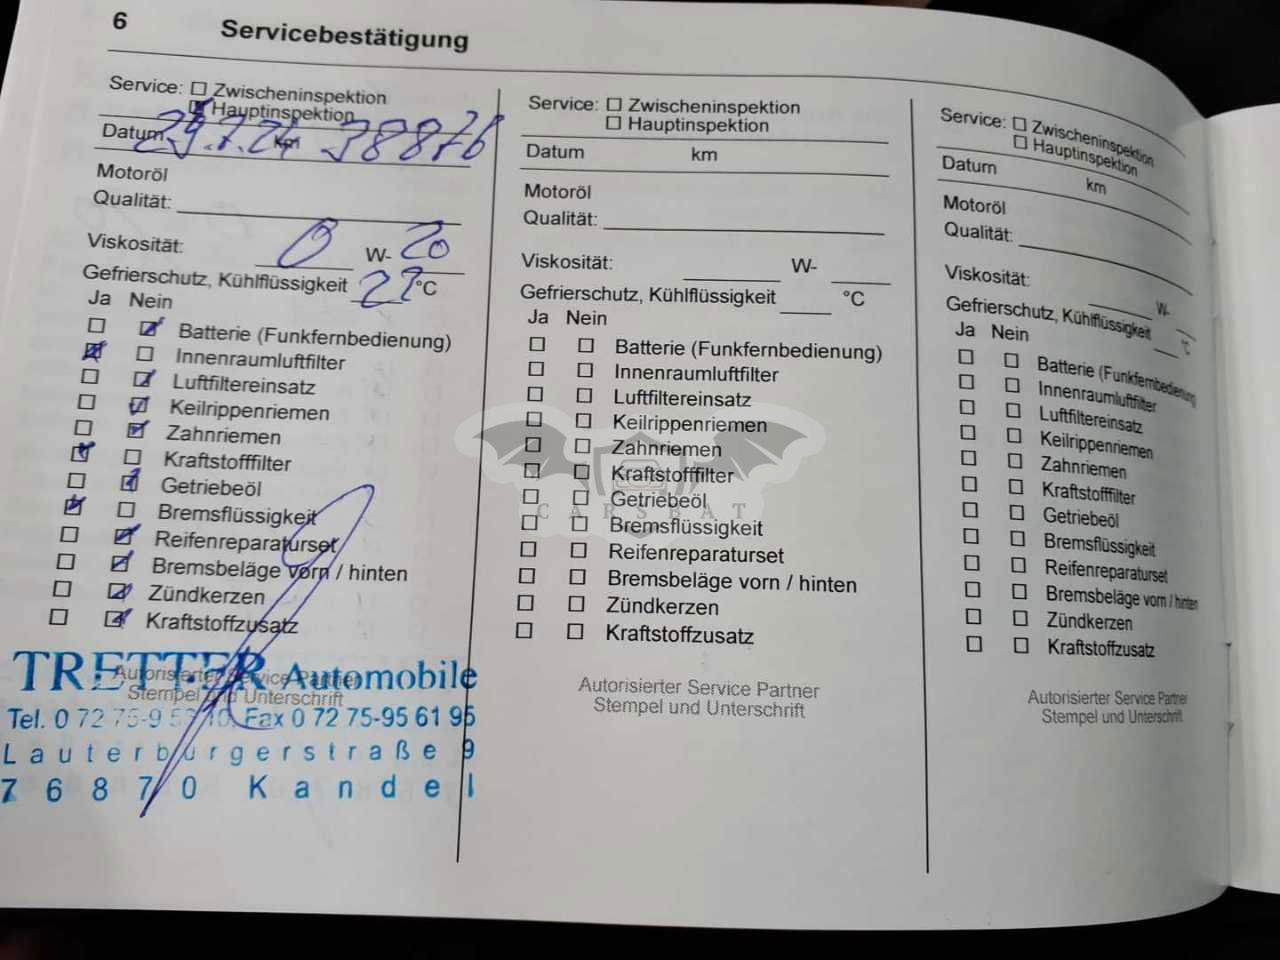 6 Servicebestätigung
Service: Zwischeninspektion
Hauptinspektion
Datum km 38876
Motoröl
Qualität:
Viskosität: 0 W- 20
Gefrierschutz, Kühlflüssigkeit °C
Ja Nein
Batterie (Funkfernbedienung)
Innenraumluftfilter
Luftfiltereinsatz
Keilrippenriemen
Zahnriemen
Kraftstofffilter
Getriebeöl
Bremsflüssigkeit
Reifenreparaturset
Bremsbeläge vorn / hinten
Zündkerzen
Kraftstoffzusatz
Autorisierter Service Partner
Stempel und Unterschrift
TRETTER Automobile
Tel. 0 72 75-9 Fax 0 72 75-95 61 95
Lauterburgerstraße 9
76870 Kandel
Service: Zwischeninspektion
Hauptinspektion
Datum km
Motoröl
Qualität:
Viskosität: W-
Gefrierschutz, Kühlflüssigkeit °C
Ja Nein
Batterie (Funkfernbedienung)
Innenraumluftfilter
Luftfiltereinsatz
Keilrippenriemen
Zahnriemen
Kraftstofffilter
Getriebeöl
Bremsflüssigkeit
Reifenreparaturset
Bremsbeläge vorn / hinten
Zündkerzen
Kraftstoffzusatz
Autorisierter Service Partner
Stempel und Unterschrift
CARSBAT
Service: Zwischeninspektion
Hauptinspektion
Datum km
Motoröl
Qualität:
Viskosität: W-
Gefrierschutz, Kühlflüssigkeit °C
Ja Nein
Batterie (Funkfernbedienung
Innenraumluftfilter
Luftfiltereinsatz
Keilrippenriemen
Zahnriemen
Kraftstofffilter
Getriebeöl
Bremsflüssigkeit
Reifenreparaturset
Bremsbeläge vorn / hinten
Zündkerzen
Kraftstoffzusatz
Autorisierter Service Partner
Stempel und Unterschrift